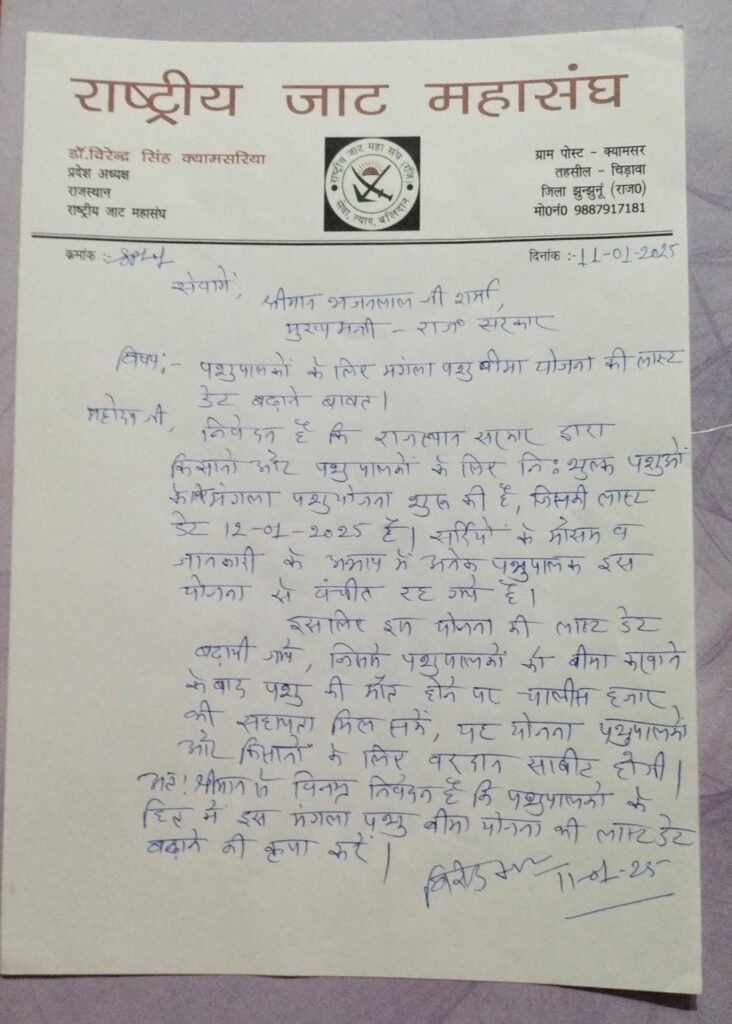 राष्ट्रीय जाट महासंघ
डॉ.विरेन्द्र सिंह क्यामसरिया
प्रदेश अध्यक्ष
राजस्थान
राष्ट्रीय जाट महासंघ
राष्ट्रीय जाट महा संघ (रजि)
सेवा, त्याग, बलिदान
ग्राम पोस्ट - क्यामसर
तहसील - चिड़ावा
जिला झुन्झुनूं (राज0)
मो0नं0 9887917181
क्रमांक :-
दिनांक :-11-01-2025
सेवामें,
श्रीमान भजनलाल जी शर्मा,
मुख्यमन्त्री - राज० सरकार
विषय:- पशुपालकों के लिए मंगला पशु बीमा योजना की लास्ट
डेट बढ़ाने बाबत।
महोदय जी,
निवेदन है कि राजस्थान सरकार द्वारा
किसानों और पशुपालकों के लिए नि:शुल्क पशुओं
के लिए मंगला पशुयोजना शुरू की है, जिसकी लास्ट
डेट 12-01-2025 है। सर्दियों के मौसम व
जानकारी के अभाव में अनेक पशुपालक इस
योजना से वंचीत रह गये है।
इसलिए इस योजना की लास्ट डेट
बढ़ायी जाये, जिससे पशुपालकों को बीमा करवाने
के बाद पशु की मौत होने पर चालीस हजार
की सहायता मिल सकें, यह योजना पशुपालकों
और किसानों के लिए वरदान साबीट होगी।
अत: श्रीमान से विनम्र निवेदन है कि पशुपालकों के
हित में इस मंगला पशु बीमा योजना की लास्ट डेट
बढ़ाने की कृपा करें।
11-01-25